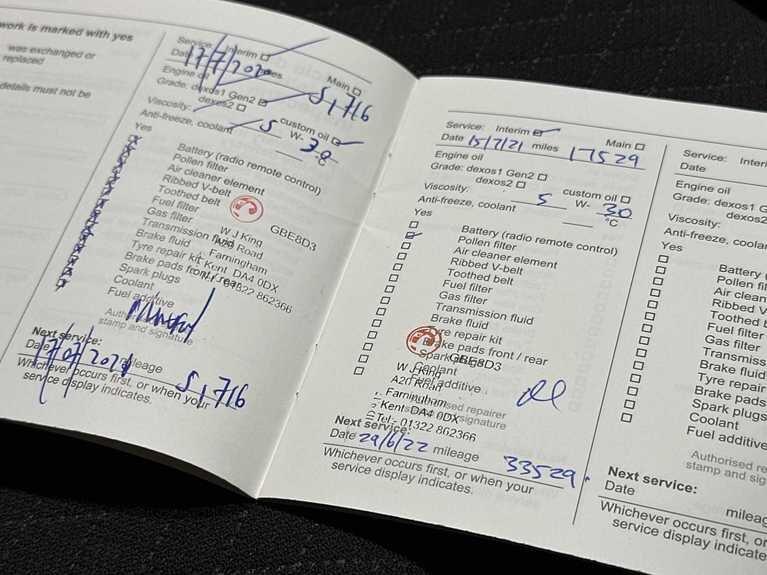 work is marked with yes
was exchanged or
replaced
details must not be
Service: Interim
Main
Date 17/7/2020 miles 5,716
Engine oil
Grade: dexos1 Gen2
dexos2
custom oil
Viscosity: 5 W- 30
Anti-freeze, coolant °C
Yes
Battery (radio remote control)
Pollen filter
Air cleaner element
Ribbed V-belt
Toothed belt
Fuel filter
Gas filter
Transmission fluid
Brake fluid
Tyre repair kit
Brake pads front / rear
Spark plugs
Coolant
Fuel additive
GBE8D3
W J King
A20 Road
Farningham
Kent DA4 0DX
01322 862366
Authorised
stamp and signature
Next service:
Date 17/07/2021 mileage 5,716
Whichever occurs first, or when your
service display indicates.
Service: Interim
Main
Date 15/7/21 miles 17529
Engine oil
Grade: dexos1 Gen2
dexos2
custom oil
Viscosity: 5 W- 30
Anti-freeze, coolant °C
Yes
Battery (radio remote control)
Pollen filter
Air cleaner element
Ribbed V-belt
Toothed belt
Fuel filter
Gas filter
Transmission fluid
Brake fluid
Tyre repair kit
Brake pads front / rear
Spark plugs
Coolant
Fuel additive
GBE8D3
W J King
A20 Road
Farningham
Kent DA4 0DX
Tel:- 01322 862366
Authorised repairer
signature
Next service:
Date 29/6/22 mileage 33529.
Whichever occurs first, or when your
service display indicates.
Service: Interi
Date
Engine oil
Grade: dexos1
dexos2
Viscosity:
Anti-freeze, coolan
Yes
Battery
Pollen fi
Air clean
Ribbed
Toothed
Fuel filter
Gas filter
Transmiss
Brake fluid
Tyre repair
Brake pads
Spark plugs
Coolant
Fuel additive
Authorised r
stamp and sig
Next service:
Date mileag
Whichever occurs first, o
service display indica